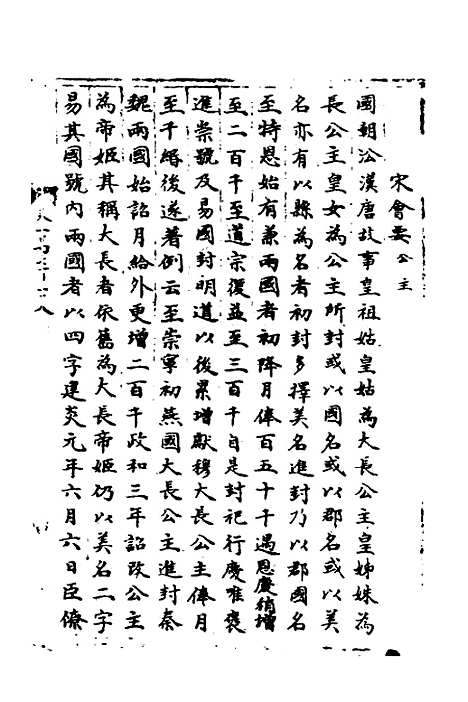 宋會要 公主
國朝㳂漢唐故事皇祖姑皇姑為大長公主皇姊妹為
長公主皇女為公主所封或以國名或以郡名或以美
名亦有以縣為名者初封多擇美名進封乃以郡國名
至特恩始有兼兩國者初降月俸百五十千遇恩慶稍增
至二百千至道宗復益至三百千自是封祀行慶唯褒
進崇號及易國封明道以後累增獻穆大長公主俸月
至千緡後遂著例云至崇寧初燕國大長公主進封秦
魏兩國始詔月給外更增二百千政和三年詔改公主
為帝姬其稱大長者依舊為大長帝姬仍以美名二字
易其國號內兩國者以四字建炎元年六月六日臣僚